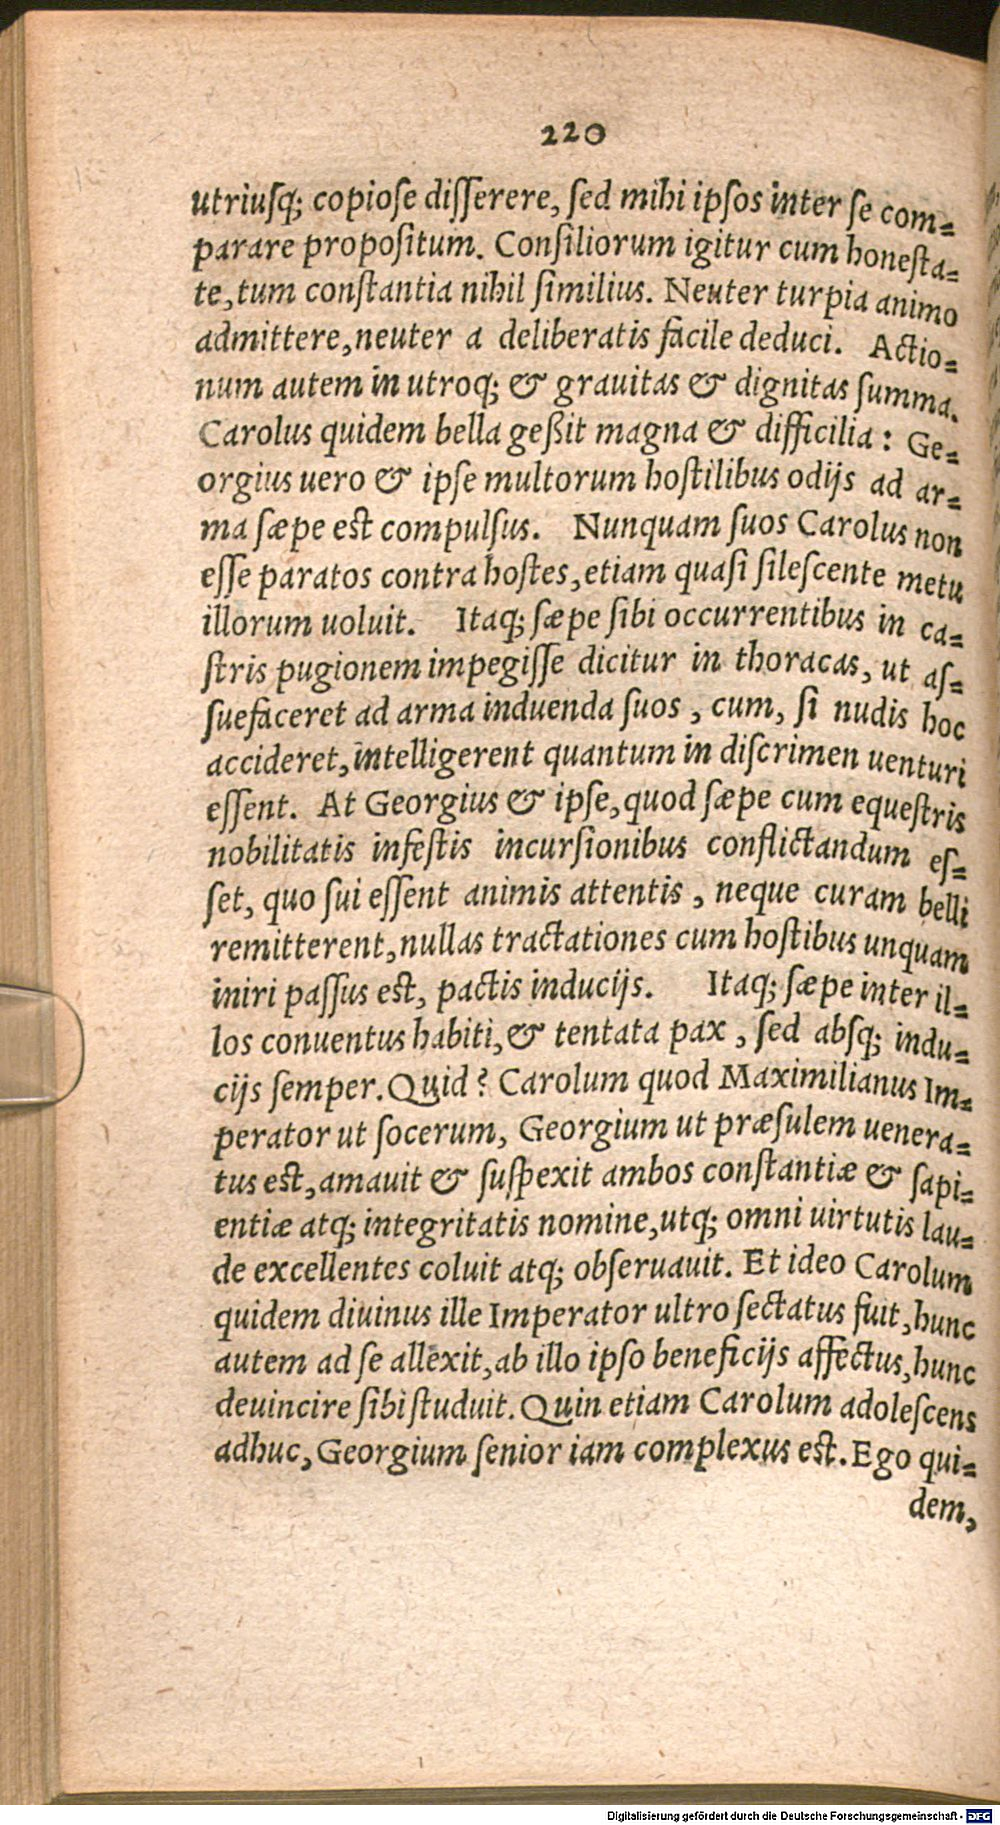 220
utriuſq; copioſe diſſerere, ſed mihi ipſos inter ſe com⸗
parare propoſitum. Conſiliorum igitur cum honeſta⸗
te, tum conſtantia nihil ſimilius. Neuter turpia animo
admittere, neuter a deliberatis facile deduci. Actio⸗
num autem in utroq; & grauitas & dignitas ſumma.
Carolus quidem bella geßit magna & difficilia: Ge⸗
orgius uero & ipſe multorum hoſtilibus odijs ad ar⸗
ma ſæpe est compulſus. Nunquam ſuos Carolus non
eſſe paratos contra hoſtes, etiam quaſi ſileſcente metu
illorum uoluit. Itaq; ſæpe ſibi occurrentibus in ca⸗
ſtris pugionem impegiſſe dicitur in thoracas, ut aſ⸗
ſuefaceret ad arma induenda ſuos, cum, ſi nudis hoc
accideret, intelligerent quantum in diſcrimen uenturi
eſſent. At Georgius & ipſe, quod ſæpe cum equeſtris
nobilitatis infeſtis incurſionibus conflictandum eſ⸗
ſet, quo ſui eſſent animis attentis, neque curam belli
remitterent, nullas tractationes cum hoſtibus unquam
iniri paſſus est, pactis inducijs. Itaq; ſæpe inter il⸗
los conuentus habiti, & tentata pax, ſed abſq; indu⸗
cijs ſemper. Quid? Carolum quod Maximilianus Im⸗
perator ut ſocerum, Georgium ut præſulem uenera⸗
tus est, amauit & ſuſpexit ambos conſtantiæ & ſapi⸗
entiæ atq; integritatis nomine, utq; omni uirtutis lau⸗
de excellentes coluit atq; obſeruauit. Et ideo Carolum
quidem diuinus ille Imperator ultro ſectatus fuit, hunc
autem ad ſe allexit, ab illo ipſo beneficijs affectus, hunc
deuincire ſibi ſtuduit. Quin etiam Carolum adoleſcens
adhuc, Georgium ſenior iam complexus est. Ego qui⸗
dem,
Digitalisierung gefördert durch die Deutsche Forschungsgemeinschaft - DFG